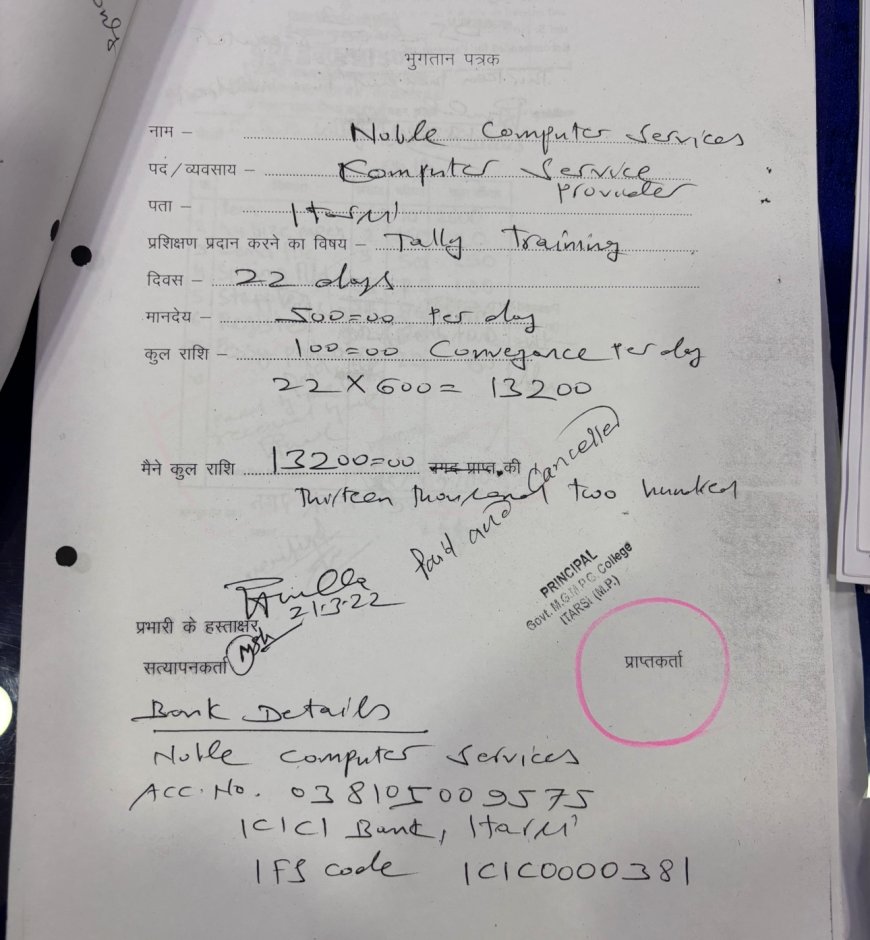 भुगतान पत्रक
नाम – Noble Computer Services
पद / व्यवसाय – Computer Service Provider
पता – Itarsi
प्रशिक्षण प्रदान करने का विषय – Tally Training
दिवस – 22 days
मानदेय – 500=00 Per day
कुल राशि – 100=00 Conveyance Per day
22 × 600 = 13200
मैने कुल राशि 13200=00 नगद प्राप्त की
Thirteen thousand two hundred
Paid and Cancelled
21.3.22
PRINCIPAL
Govt. M.G.M P.G. College
ITARSI (M.P.)
प्रभारी के हस्ताक्षर
सत्यापनकर्ता
प्राप्तकर्ता
Bank Details
Noble Computer Services
Acc. No. 038105009575
ICICI Bank, Itarsi
IFS code ICIC0000381